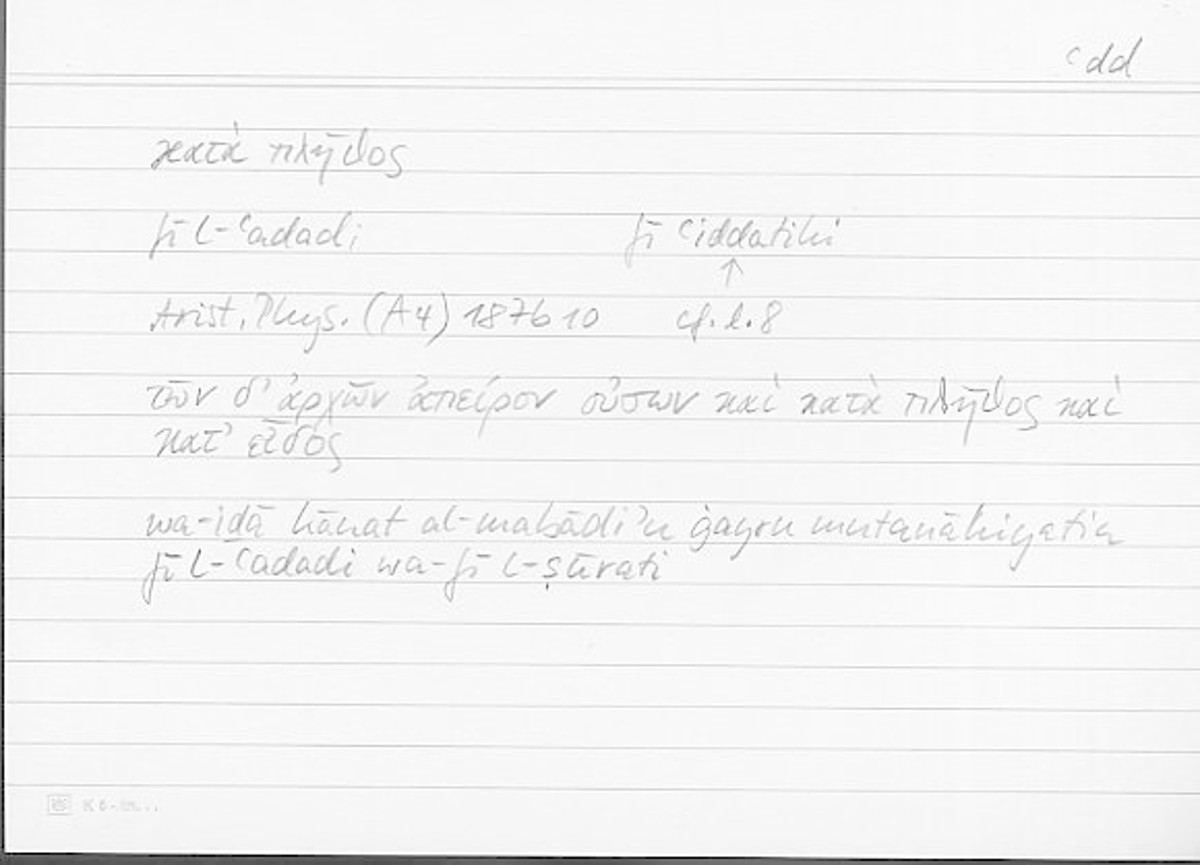 ʿdd
κατὰ πλῆθος
fī l-ʿadadi fī ʿiddatihi
↑
Arist. Phys. (A 4) 187b10 cf. l. 8
τῶν δ' ἀρχῶν ἀπείρον οὐσων καὶ κατὰ πλῆθος καὶ
κατ' εἶδος
wa-iḏā kānat al-mabādiʾu ġayru mutanāhiyatin
fī l-ʿadadi wa-fī l-ṣūrati